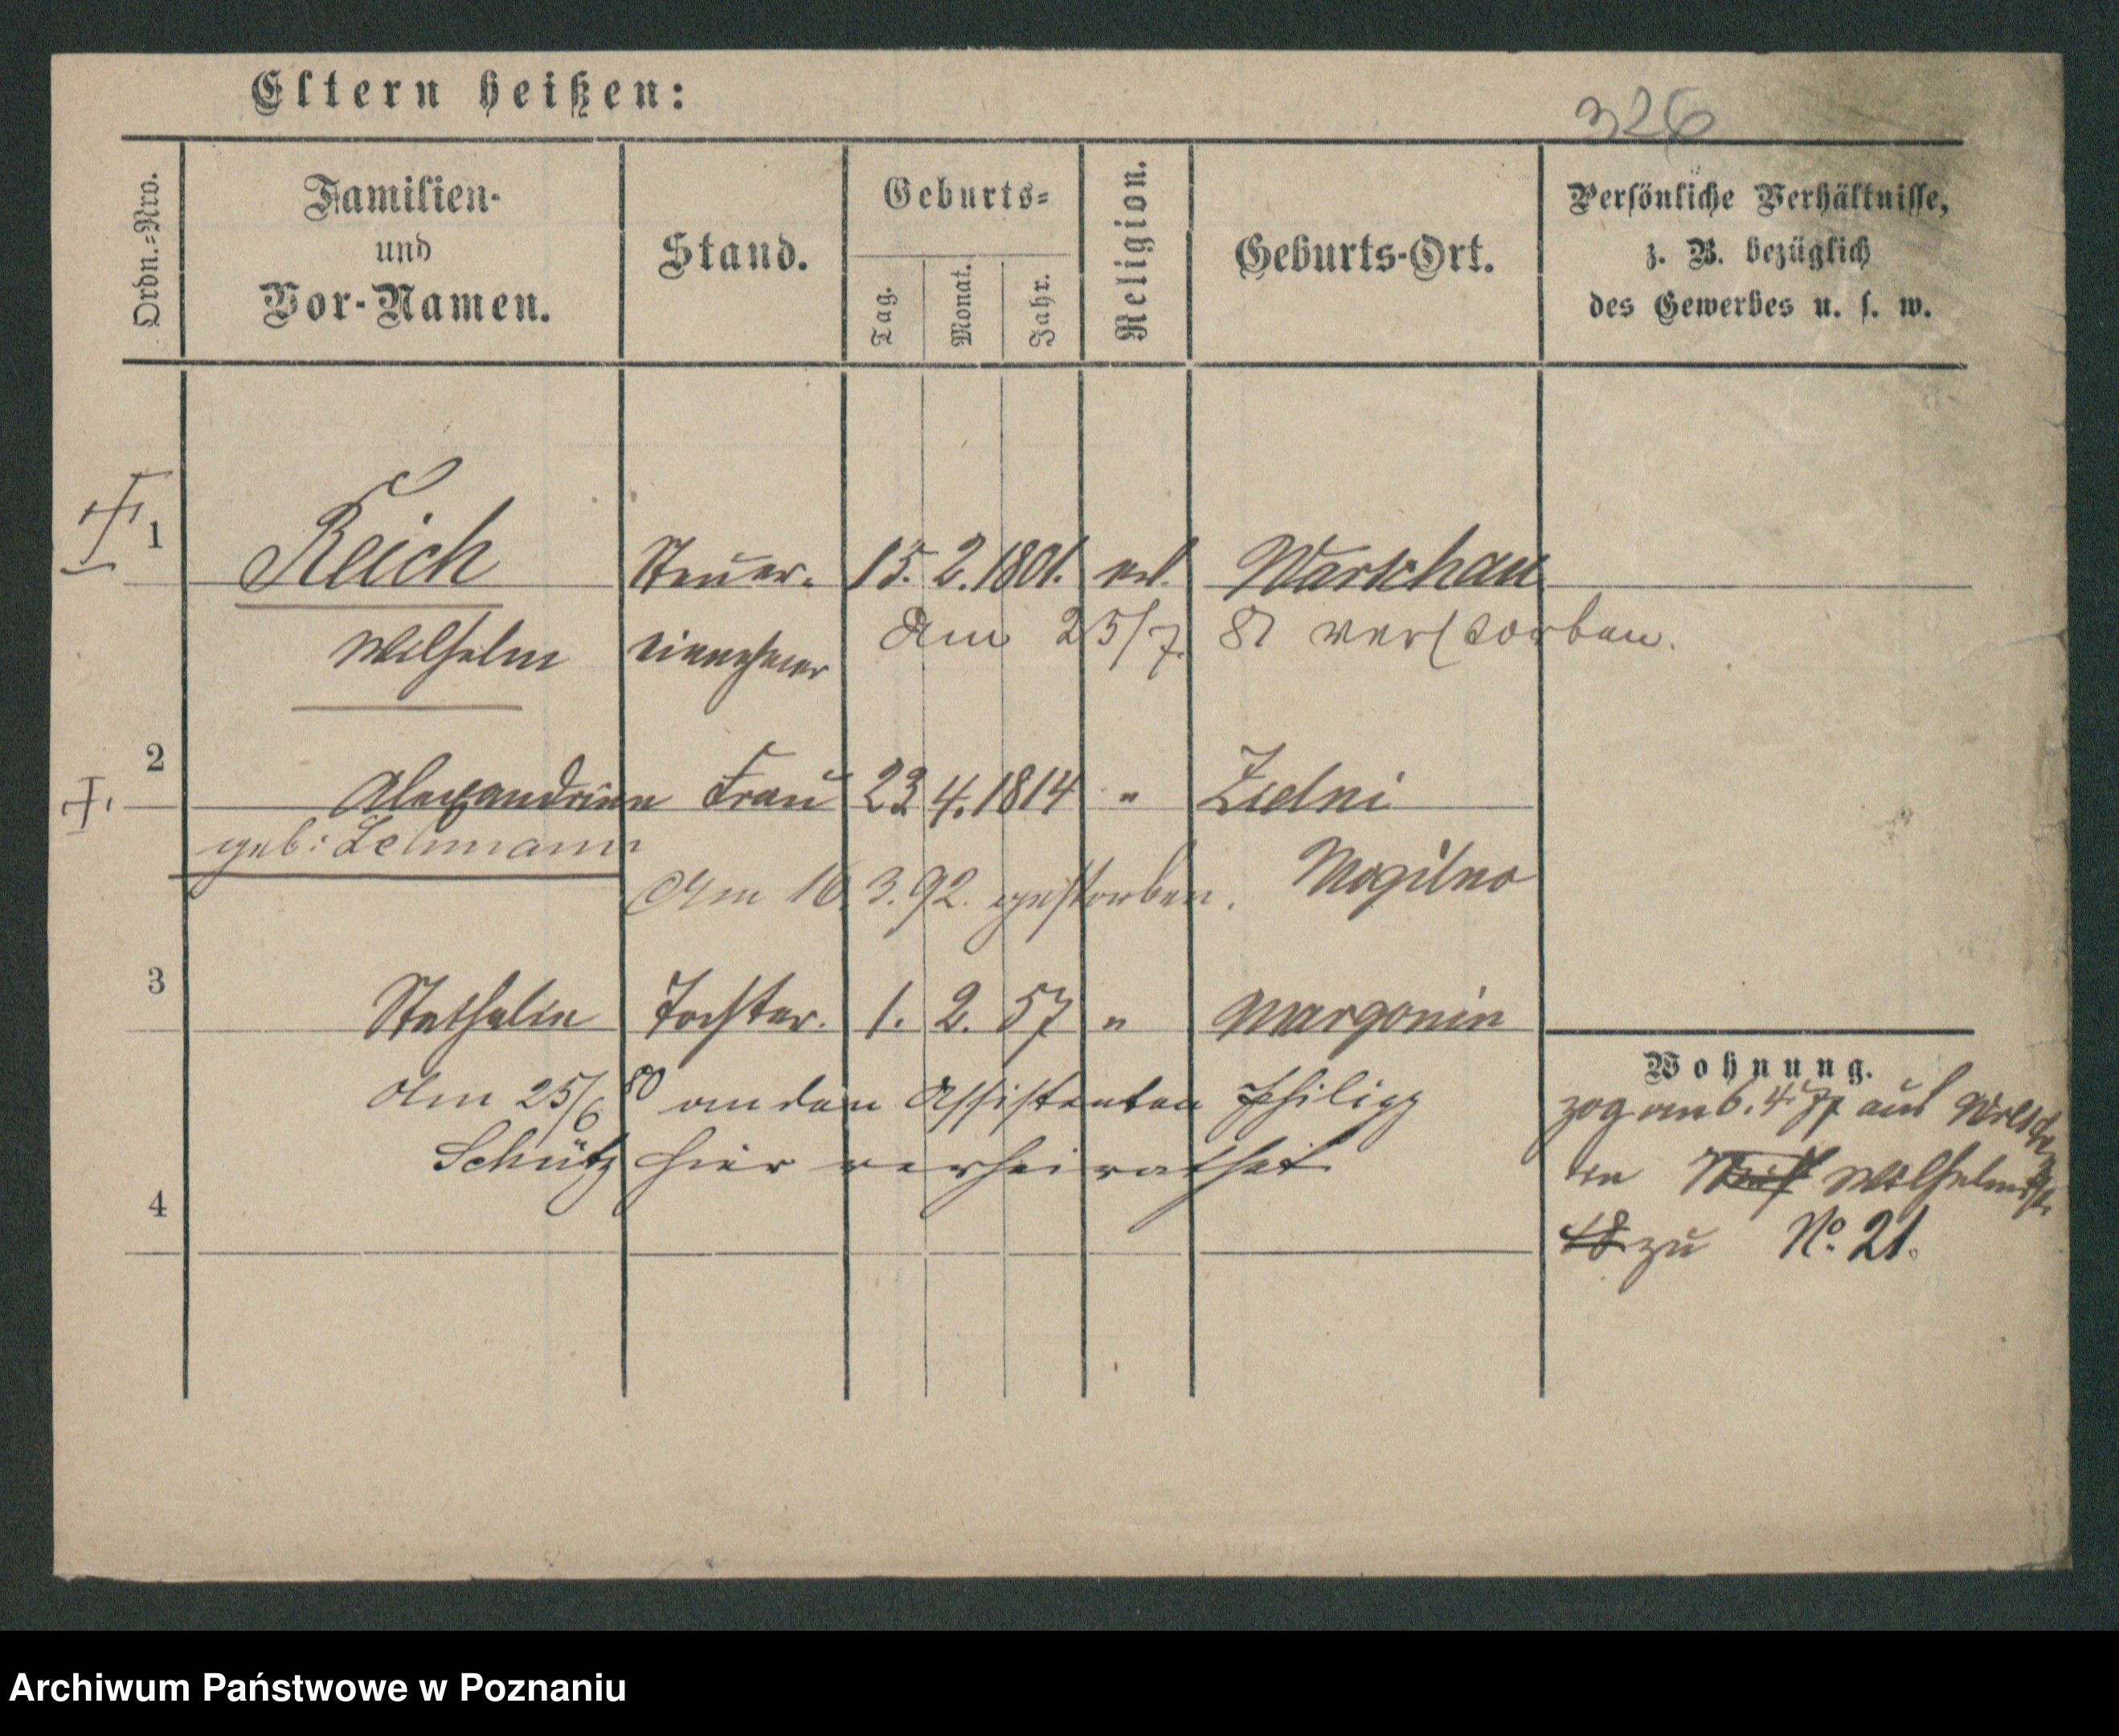 Eltern heißen:
326
Ordn.-Nro.
Familien-
und
Vor-Namen.
Stand.
Geburts-
Tag.
Monat.
Jahr.
Religion.
Geburts-Ort.
Persönliche Verhältnisse,
z. B. bezüglich
des Gewerbes u. s. w.
1 Reich Steuer- 15. 2. 1801. Warschau
Wilhelm einnehmer Am 25/7. 81 verstorben.
2 Alexandrine Frau 23 4. 1814 " Zielni
geb: Lehmann
Am 16. 3. 92. gestorben. Mogilno
3 Tochter. 1. 2. 57 " Margonin
Am 25/6 80 an den Assistenten Philipp
Schütz hier verheirathet
4
Wohnung.
zog am 6. 4. 77 aus
Wilhelmstr.
18 zu No. 21.
Archiwum Państwowe w Poznaniu